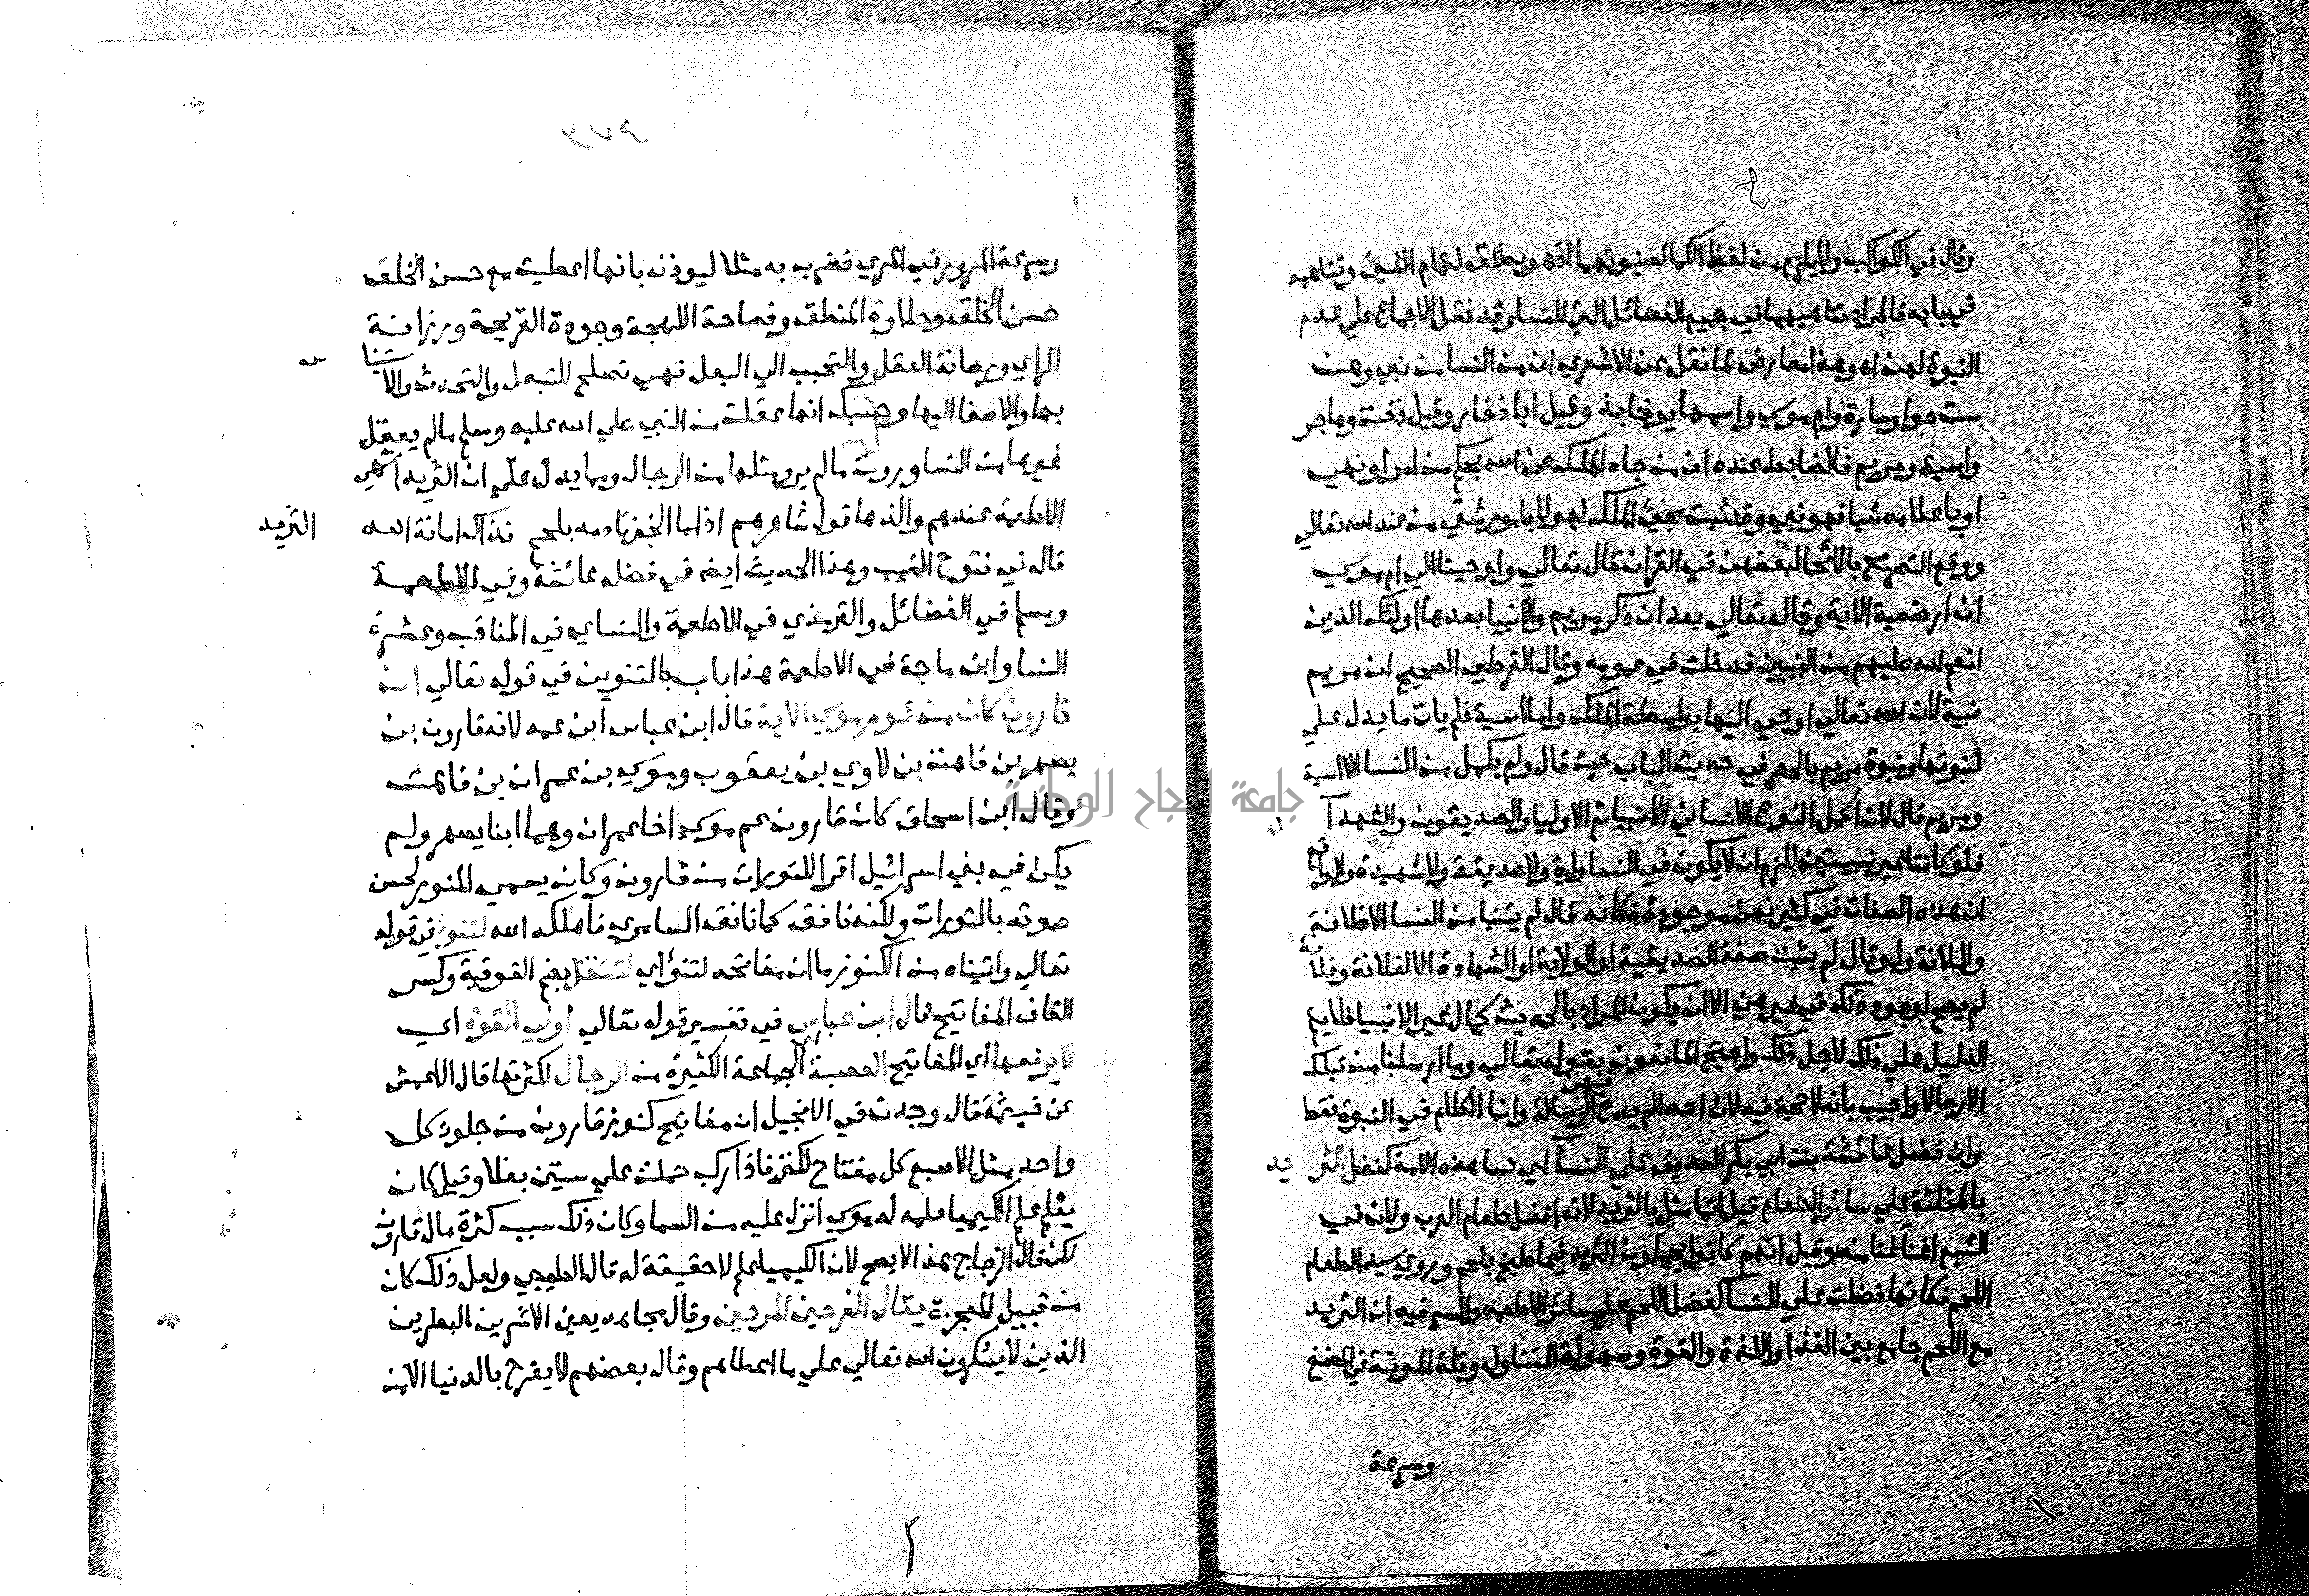 وقال في الكواكب ولا يلزم من لفظ الكمال نبوتهما اذ هو يطلق لتمام الشيء وتناهيه
في بابه فالمراد تناهيهما في جميع الفضائل التي للنسا وقد نقل الاجماع علي عدم
النبوة لهن اه وهذا معارض بما نقل عن الاشعري ان من النسا من نبي وهن
ست حوا وسارة وام موسي واسمها يوخابذ وقيل اباذخا وقيل وهاجر
واسية ومريم فالضابط عنده ان من جاه الملك عن الله بحكم من امر او نهي
او باعلامه شيا فهو نبي وقد ثبت مجئ الملك لهولا بامور شتي من عند الله تعالي
ووقع التصريح بالايحا لبعضهن في القران قال تعالي واوحينا الي ام موسي
ان ارضعيه الاية وقال تعالي بعد ان ذكر مريم والانبيا بعدها اولئك الذين
انعم الله عليهم من النبيين فدخلت في عمومه وقال القرطبي الصحيح ان مريم
نبية لان الله تعالي اوحي اليها بواسطة الملك واما اسية فلم يات ما يدل علي
نبوتها ونبوة مريم بالحصر في حديث الباب حيث قال ولم يكمل من النسا الا اسية
ومريم قال لان اكمل النوع الانساني الانبيا ثم الاوليا والصديقون والشهدا
فلو كانتا غير نبيتين للزم ان لا يكون في النسا ولية ولا صديقة ولا شهيدة والواقع
ان هذه الصفات في كثير منهن موجودة فكانه قال لم ينبا من النسا الا فلانة
وفلانة ولو قال لم يثبت صفة الصديقية او الولاية او الشهادة الا لفلانة وفلانة
لم يصح لوجود ذلك في غيرهن الا ان يكون المراد بالحديث كمال غير الانبيا فلا يتم
الدليل علي ذلك لاجل ذلك واحتج المانعون بقوله تعالي وما ارسلنا من قبلك
الا رجالا واجيب بانه لا حجة فيه لان احدا لم يدع فيهن الرسالة وانما الكلام في النبوة فقط
وان فضل عائشة بنت ابي بكر الصديق علي النسا اي نسا هذه الامة كفضل الثريد
بالمثلثة علي سائر الطعام قيل انما مثل بالثريد لانه افضل طعام العرب ولانه في
الشبع اغنا وقيل انهم كانوا يحملون الثريد فيما طبخ بلحم وروي سيد الطعام
اللحم فكانها فضلت علي النسا كفضل اللحم علي سائر الاطعمة والسر فيه ان الثريد
مع اللحم جامع بين الغذا واللذة والقوة وسهولة التناول وقلة المونة في المضغ
وسرعة
وسرعة المرور في المري فضرب به مثلا ليوذن بانها اعطيت مع حسن الخلق
حسن الخلق وحلاوة المنطق وفصاحة اللهجة وجودة القريحة ورزانة
الراي ورصانة العقل والتحبب الي البعل فهي تصلح للتبعل والتحدث والاستينا
س
بها والاصغا اليها وحسبك انها عقلت من النبي صلي الله عليه وسلم ما لم يعقل
غيرها من النسا وروت ما لم يرو مثلها من الرجال ومما يدل علي ان الثريد اشهي
الاطعمة عندهم والذها قول شاعرهم اذا ما الخبز تادمه بلحم فذاك امانة الله
الثريد
قال في فتوح الغيب وهذا الحديث ايضه في فضل عائشة وفي الاطعمة
ومسلم في الفضائل والترمذي في الاطعمة والنساي في المناقب وعشرة
النسا وابن ماجة في الاطعمة هذا باب بالتنوين في قوله تعالي ان
قارون كان من قوم موسي الاية قال ابن عباس ابن عمه لانه قارون بن
يصهر بن قاهث بن لاوي بن يعقوب وموسي بن عمران بن قاهث
وقال ابن اسحاق كان قارون عم موسي اخا عمران وهما ابنا يصهر ولم
يكن في بني اسرائيل اقرا للتورات من قارون وكان يسمي المنور لحسن
صوته بالتورات ولكنه نافق كما نافق السامري فاهلكه الله لتنو في قوله
تعالي واتيناه من الكنوز ما ان مفاتحه لتنؤ اي لتثقل بضم الفوقية وكسر
القاف المفاتيح قال ابن عباس في تفسير قوله تعالي اولي القوة اي
لا يرفعها اي المفاتيح العصبة اي الجماعة الكثيرة من الرجال لكثرتها قال الاعمش
عن خيثمة قال وجدت في الانجيل ان مفاتيح كنوز قارون من جلود كل
واحد مثل الاصبع كل مفتاح لكنز فاذا ركب حملت علي ستين بغلا وقيل كان
يعلم علم الكيميا علمه له موسي انزل عليه من السما وكان ذلك سبب كثرة مال قارون
لكن قال الزجاج هذا لا يصح لان الكيميا علم لا حقيقة له قال الطيبي ولعل ذلك كان
من قبيل المعجزة يقال الفرحين المرحين وقال مجاهد يعني الاشرين البطرين
الذين لا يشكرون الله تعالي علي ما اعطاهم وقال بعضهم لا يفرح بالدنيا الا من
جامعة النجاح الوطنية